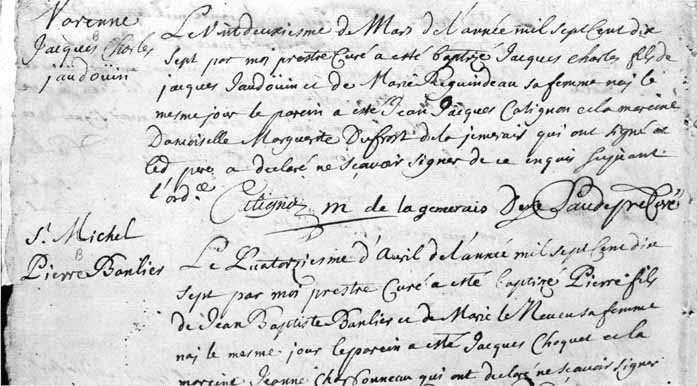 Varenne
Jacques Charles
B
jaudoüin
Le vintdeuxiesme de Mars de l'année mil sept Cent dix
sept par moj prestre Curé a esté baptisé Jacques charles fils
de jacques Jaudoüin et de Marie Riguindeau sa femme naj le
mesme jour le parein a esté Jean Jacques Catignon et la mareine
Damoiselle Marguerite Dufrost de la jemerais qui ont signé
led pere a declaré ne scavoir signer de ce enquis suivant
l'ord.ce
Catignon m de la gemerais
St. Michel
B
Pierre Banlier
Le Quatorziesme d'Avril de l'année mil sept Cent dix
sept par moj prestre Curé a esté baptisé Pierre fils
de Jean Baptiste Banlier et de Marie le Neveu sa femme
naj le mesme jour le parein a esté Jacques Choquet et la
mareine Jeanne Charbonneau qui ont declaré ne scavoir signer